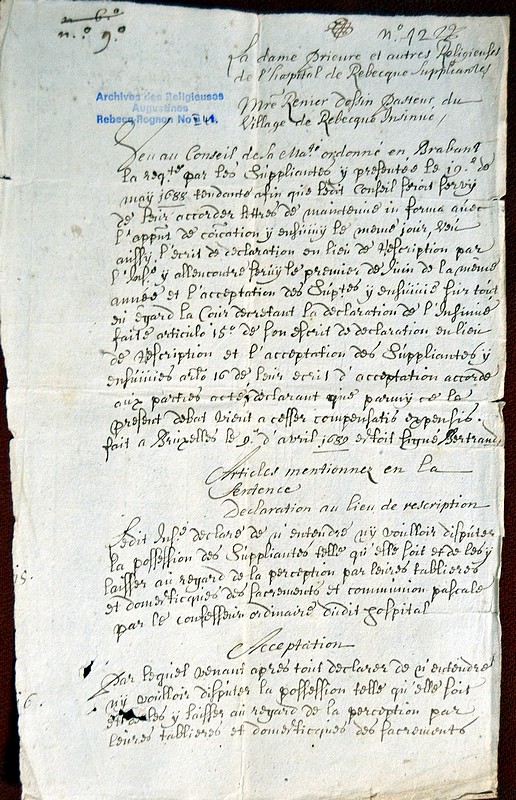 n.° 6.°
n.° 9°
n.° 12
La dame Prieure et autres Religieuses
de l'hospital de Rebecque Suppliantes
Mre Renier Dossin Pasteur du
Village de Rebecque Insinue,
Archives des Religieuses
Augustines
Rebecq-Rognon No 241.
Veu au Conseil de sa Mate ordonné en Brabant
la reqte par les Suppliantes y presentée le 19.e de
may 1688 tendante afin que ledit Conseil seroit servy
de leur accorder lettres de maintenue in forma avec
l'appnt de coication y ensuiuy le meme jour, veu
aussy l'ecrit de declaration en lieu de Rescription par
l'Insé y allencontre servy le premier de Juin de la même
année et l'acceptation des Suptes y ensuiuie sur tout
eu egard La Cour decretant la declaration de l'Insinué
faite articulo 15.° de son escrit de declaration en lieu
de Rescription et l'acceptation des Suppliantes y
ensuiuies arlo 16 de leur ecrit d'acceptation accorde
aux parties acte, declarant que parmy ce le
present debat vient a cesser compensatis expensis.
fait a Bruxelles le 9. d'avril 1689 estoit signé Bertrand
Articles mentionnez en la
Sentence
Declaration au lieu de rescription
15.
Ledit Insé declare de n'entendre ny voulloir disputer
la possession des Suppliantes telle qu'elle soit et de les y
laisser au regard de la perception par leures tablieres
et domesticques des sacrements et communion pascale
par le confesseur ordinaire dudit hospital
Acceptation
16.
Par lequel venant après tout declarer de n'entendre
ny voulloir disputer la possession telle qu'elle soit
et de les y laisser au regard de la perception par
leures tablieres et domesticques des sacrements